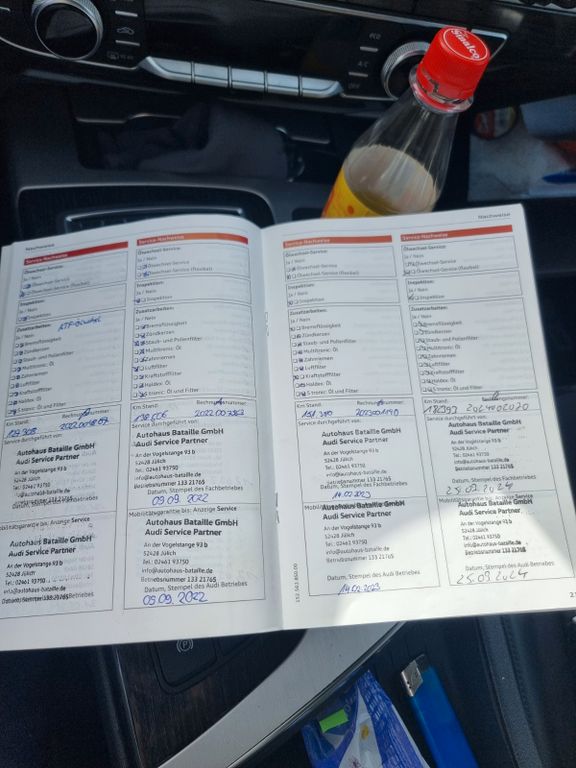 Sinalco
A/C
OFF
Nachweise
Service-Nachweise
Ölwechsel-Service:
Ja / Nein
Ölwechsel-Service
Ölwechsel-Service (flexibel)
Inspektion:
Ja / Nein
Inspektion
Zusatzarbeiten:
Ja / Nein
Bremsflüssigkeit
Zündkerzen
Staub- und Pollenfilter
Multitronic: Öl
Zahnriemen
Luftfilter
Kraftstofffilter
Haldex: Öl
S tronic: Öl und Filter
Km Stand: Rechnungsnummer:
Service durchgeführt von:
Autohaus Bataille GmbH
Audi Service Partner
An der Vogelstange 93 b
52428 Jülich
Tel.: 02461 93750
info@autohaus-bataille.de
Mobilitätsgarantie bis: Anzeige Service
Autohaus Bataille GmbH
Audi Service Partner
An der Vogelstange 93 b
52428 Jülich
Tel.: 02461 93750
Service-Nachweise
Ölwechsel-Service:
Ja / Nein
Ölwechsel-Service
Ölwechsel-Service (flexibel)
Inspektion:
Ja / Nein
Inspektion
Zusatzarbeiten:
Ja / Nein
Bremsflüssigkeit
Zündkerzen
Staub- und Pollenfilter
Multitronic: Öl
Zahnriemen
Luftfilter
Kraftstofffilter
Haldex: Öl
S tronic: Öl und Filter
Km Stand: Rechnungsnummer:
138 606
Service durchgeführt von:
Autohaus Bataille GmbH
Audi Service Partner
An der Vogelstange 93 b
52428 Jülich
Tel.: 02461 93750
info@autohaus-bataille.de
Betriebsnummer 133 21765
Datum, Stempel des Fachbetriebes
09.09.2022
Mobilitätsgarantie bis: Anzeige Service
Autohaus Bataille GmbH
Audi Service Partner
An der Vogelstange 93 b
52428 Jülich
Tel.: 02461 93750
info@autohaus-bataille.de
Betriebsnummer 133 21765
Datum, Stempel des Audi Betriebes
09.09.2022
Service-Nachweise
Ölwechsel-Service:
Ja / Nein
Ölwechsel-Service
Ölwechsel-Service (flexibel)
Inspektion:
Ja / Nein
Inspektion
Zusatzarbeiten:
Ja / Nein
Bremsflüssigkeit
Zündkerzen
Staub- und Pollenfilter
Multitronic: Öl
Zahnriemen
Luftfilter
Kraftstofffilter
Haldex: Öl
S tronic: Öl und Filter
Km Stand: Rechnungsnummer:
Service durchgeführt von:
Autohaus Bataille GmbH
Audi Service Partner
An der Vogelstange 93 b
52428 Jülich
Tel.: 02461 93750
info@autohaus-bataille.de
Betriebsnummer 133 21765
Datum, Stempel des Fachbetriebes
14.02.2023
Mobilitätsgarantie bis: Anzeige Service
Autohaus Bataille GmbH
Audi Service Partner
An der Vogelstange 93 b
52428 Jülich
Tel.: 02461 93750
info@autohaus-bataille.de
Betriebsnummer 133 21765
Datum, Stempel des Audi Betriebes
14.02.2023
152.5A1.8S0.00
Nachweise
Service-Nachweise
Ölwechsel-Service:
Ja / Nein
Ölwechsel-Service
Ölwechsel-Service (flexibel)
Inspektion:
Ja / Nein
Inspektion
Zusatzarbeiten:
Ja / Nein
Bremsflüssigkeit
Zündkerzen
Staub- und Pollenfilter
Multitronic: Öl
Zahnriemen
Luftfilter
Kraftstofffilter
Haldex: Öl
S tronic: Öl und Filter
Km Stand:
Service durchgeführt von:
Autohaus Bataille GmbH
Audi Service Partner
An der Vogelstange 93 b
52428 Jülich
Tel.: 02461 93750
info@autohaus-bataille.de
Betriebsnummer 133 21765
Datum, Stempel des Fachbetriebes
Mobilitätsgarantie bis: Anzeige Service
Autohaus Bataille GmbH
Audi Service Partner
An der Vogelstange 93 b
52428 Jülich
Tel.: 02461 93750
info@autohaus-bataille.de
Betriebsnummer 133 21765
Datum, Stempel des Audi Betriebes